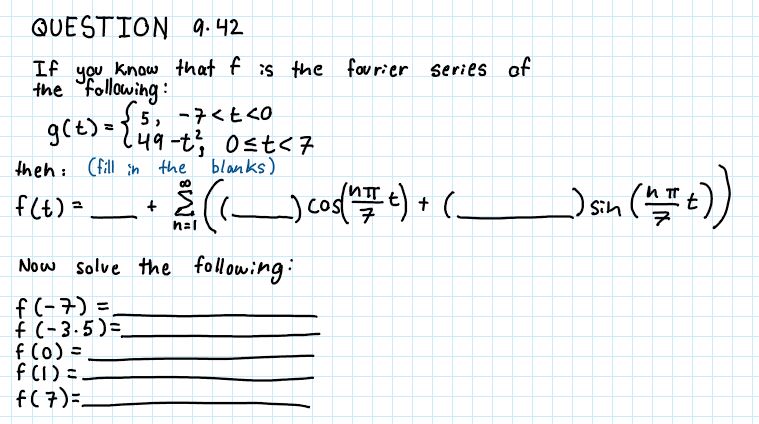 QUESTION 9.42
If you know that f is the fourier series of
the following:
g(t) = { 5, -7 < t < 0
49 - t², 0 ≤ t < 7
then: (fill in the blanks)
f(t) = ____ + ∞ Σ n=1 ((____) cos(nπ/7 t) + (________) sin (nπ/7 t))
Now solve the following:
f(-7) = ____________
f(-3.5) = ____________
f(0) = ____________
f(1) = ____________
f(7) = ____________